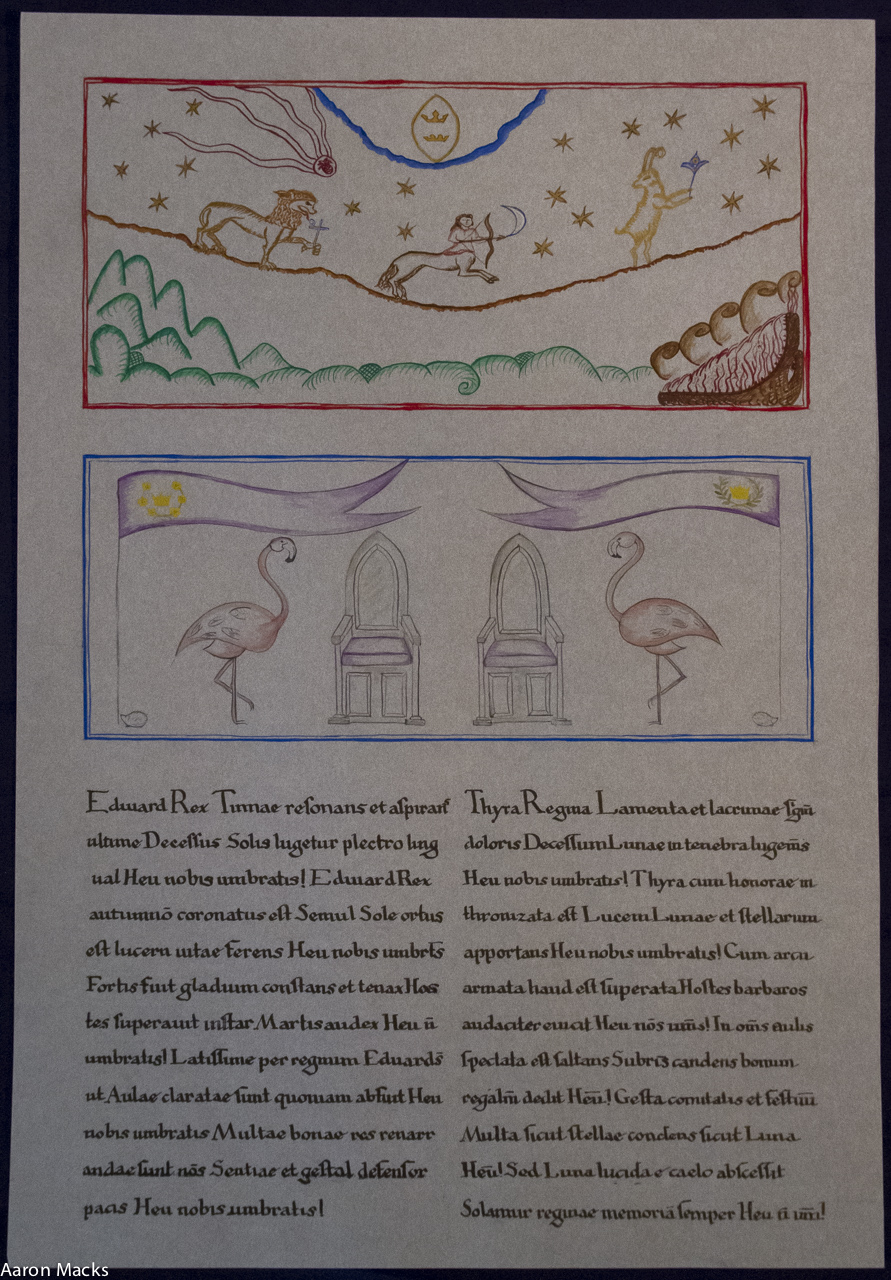 Eduuard Rex Tinnae reſonans et aſpirarſ
ultime Deceſſus Solis lugetur plectro ling
ual Heu nobis umbratis! Eduuard Rex
autumnō coronatus eſt Semul Sole ortus
eſt lucem uitae ferens Heu nobis umbrts̄
Fortis fuit gladium conſtans et tenax Hos
tes ſuperauit inſtar Martis audex Heu n̄
umbratis! Latiſſime per regnum Eduards̄
ut Aulae claratae ſunt quoniam abfuit Heu
nobis umbratis Multae bonae res renarr
andae ſunt nōs Sentiae et geſtal defenſor
pacis Heu nobis umbratis!
Thyra Regina Lamenta et lacrimae ſigm̄
doloris Deceſſum Lunae in tenebra lugem̄s
Heu nobis umbratis! Thyra cum honorae in
thronizata eſt Lucem Lunae et ſtellarum
apportans Heu nobis umbratis! Cum arcu
armata haud eſt ſuperata Hoſtes barbaros
audaciter euicit Heu nōs um̄s! In om̄s aulis
ſpectata eſt ſaltans Subrīs candens bonum
regalm̄ dedit Hēu! Geſta comitatis et feſtiū
Multa ſicut ſtellae condens ſicut Luna
Hēu! Sed Luna lucida e caelo abſceſſit
Solamur reginae memoriā ſemper Heu n̄ um̄!
Aaron Macks